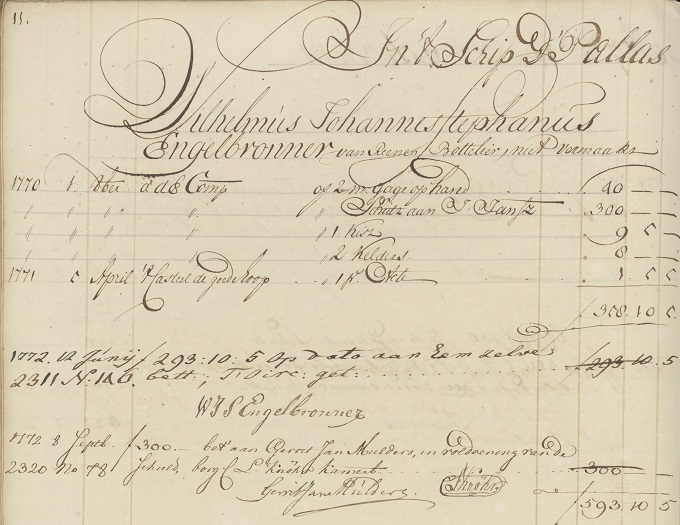 11.
In't Schip D'Pallas
Wilhelmus Johannes Stephanus
Engelbronner van Bottelier, niet vermaakt
1770 1 8ber a d E Comp of 2 m. gage op hand 40 — —
" " " " " Schult aan J Jansz 300 — —
" " " " " 1 Kist 9 5 —
" " " " " 2 Kelders 8 — —
1771 5 April 't Casteel de goede hoop " 1 pr Acte 1 5 5
ƒ 358. 10 5.
1772. 12 Junij ƒ 293:10:5 Op dato aan hem zelve ƒ 293. 10. 5
2311 No: bett.
W J S Engelbronner
1772 8 Septb. ƒ 300 — bet aan Gerret Jan Mulders, in voldoening van de
2320 No 78 schuld, 300 —
Gerrit Jan Mulders
593. 10 5